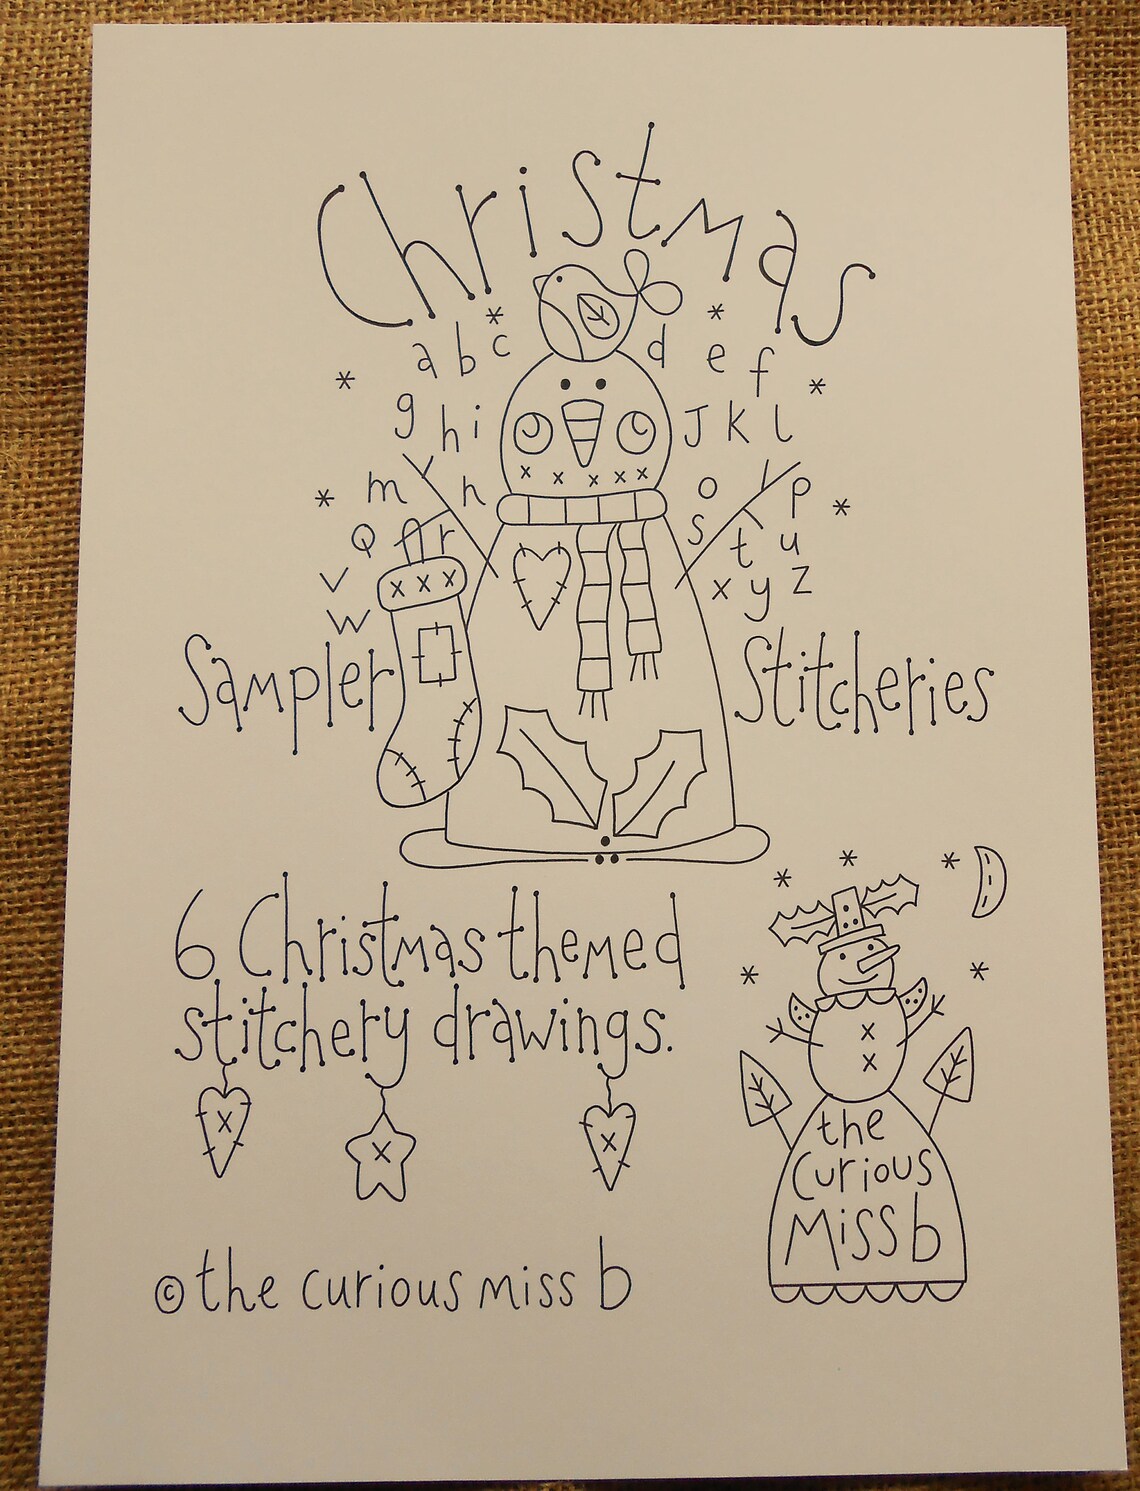 Christmas
a b c d e f
g h i J k l
m n o p
Q r s t u
v w x y z
Sampler Stitcheries
6 Christmas themed
stitchery drawings.
the
Curious
Miss b
© the curious miss b